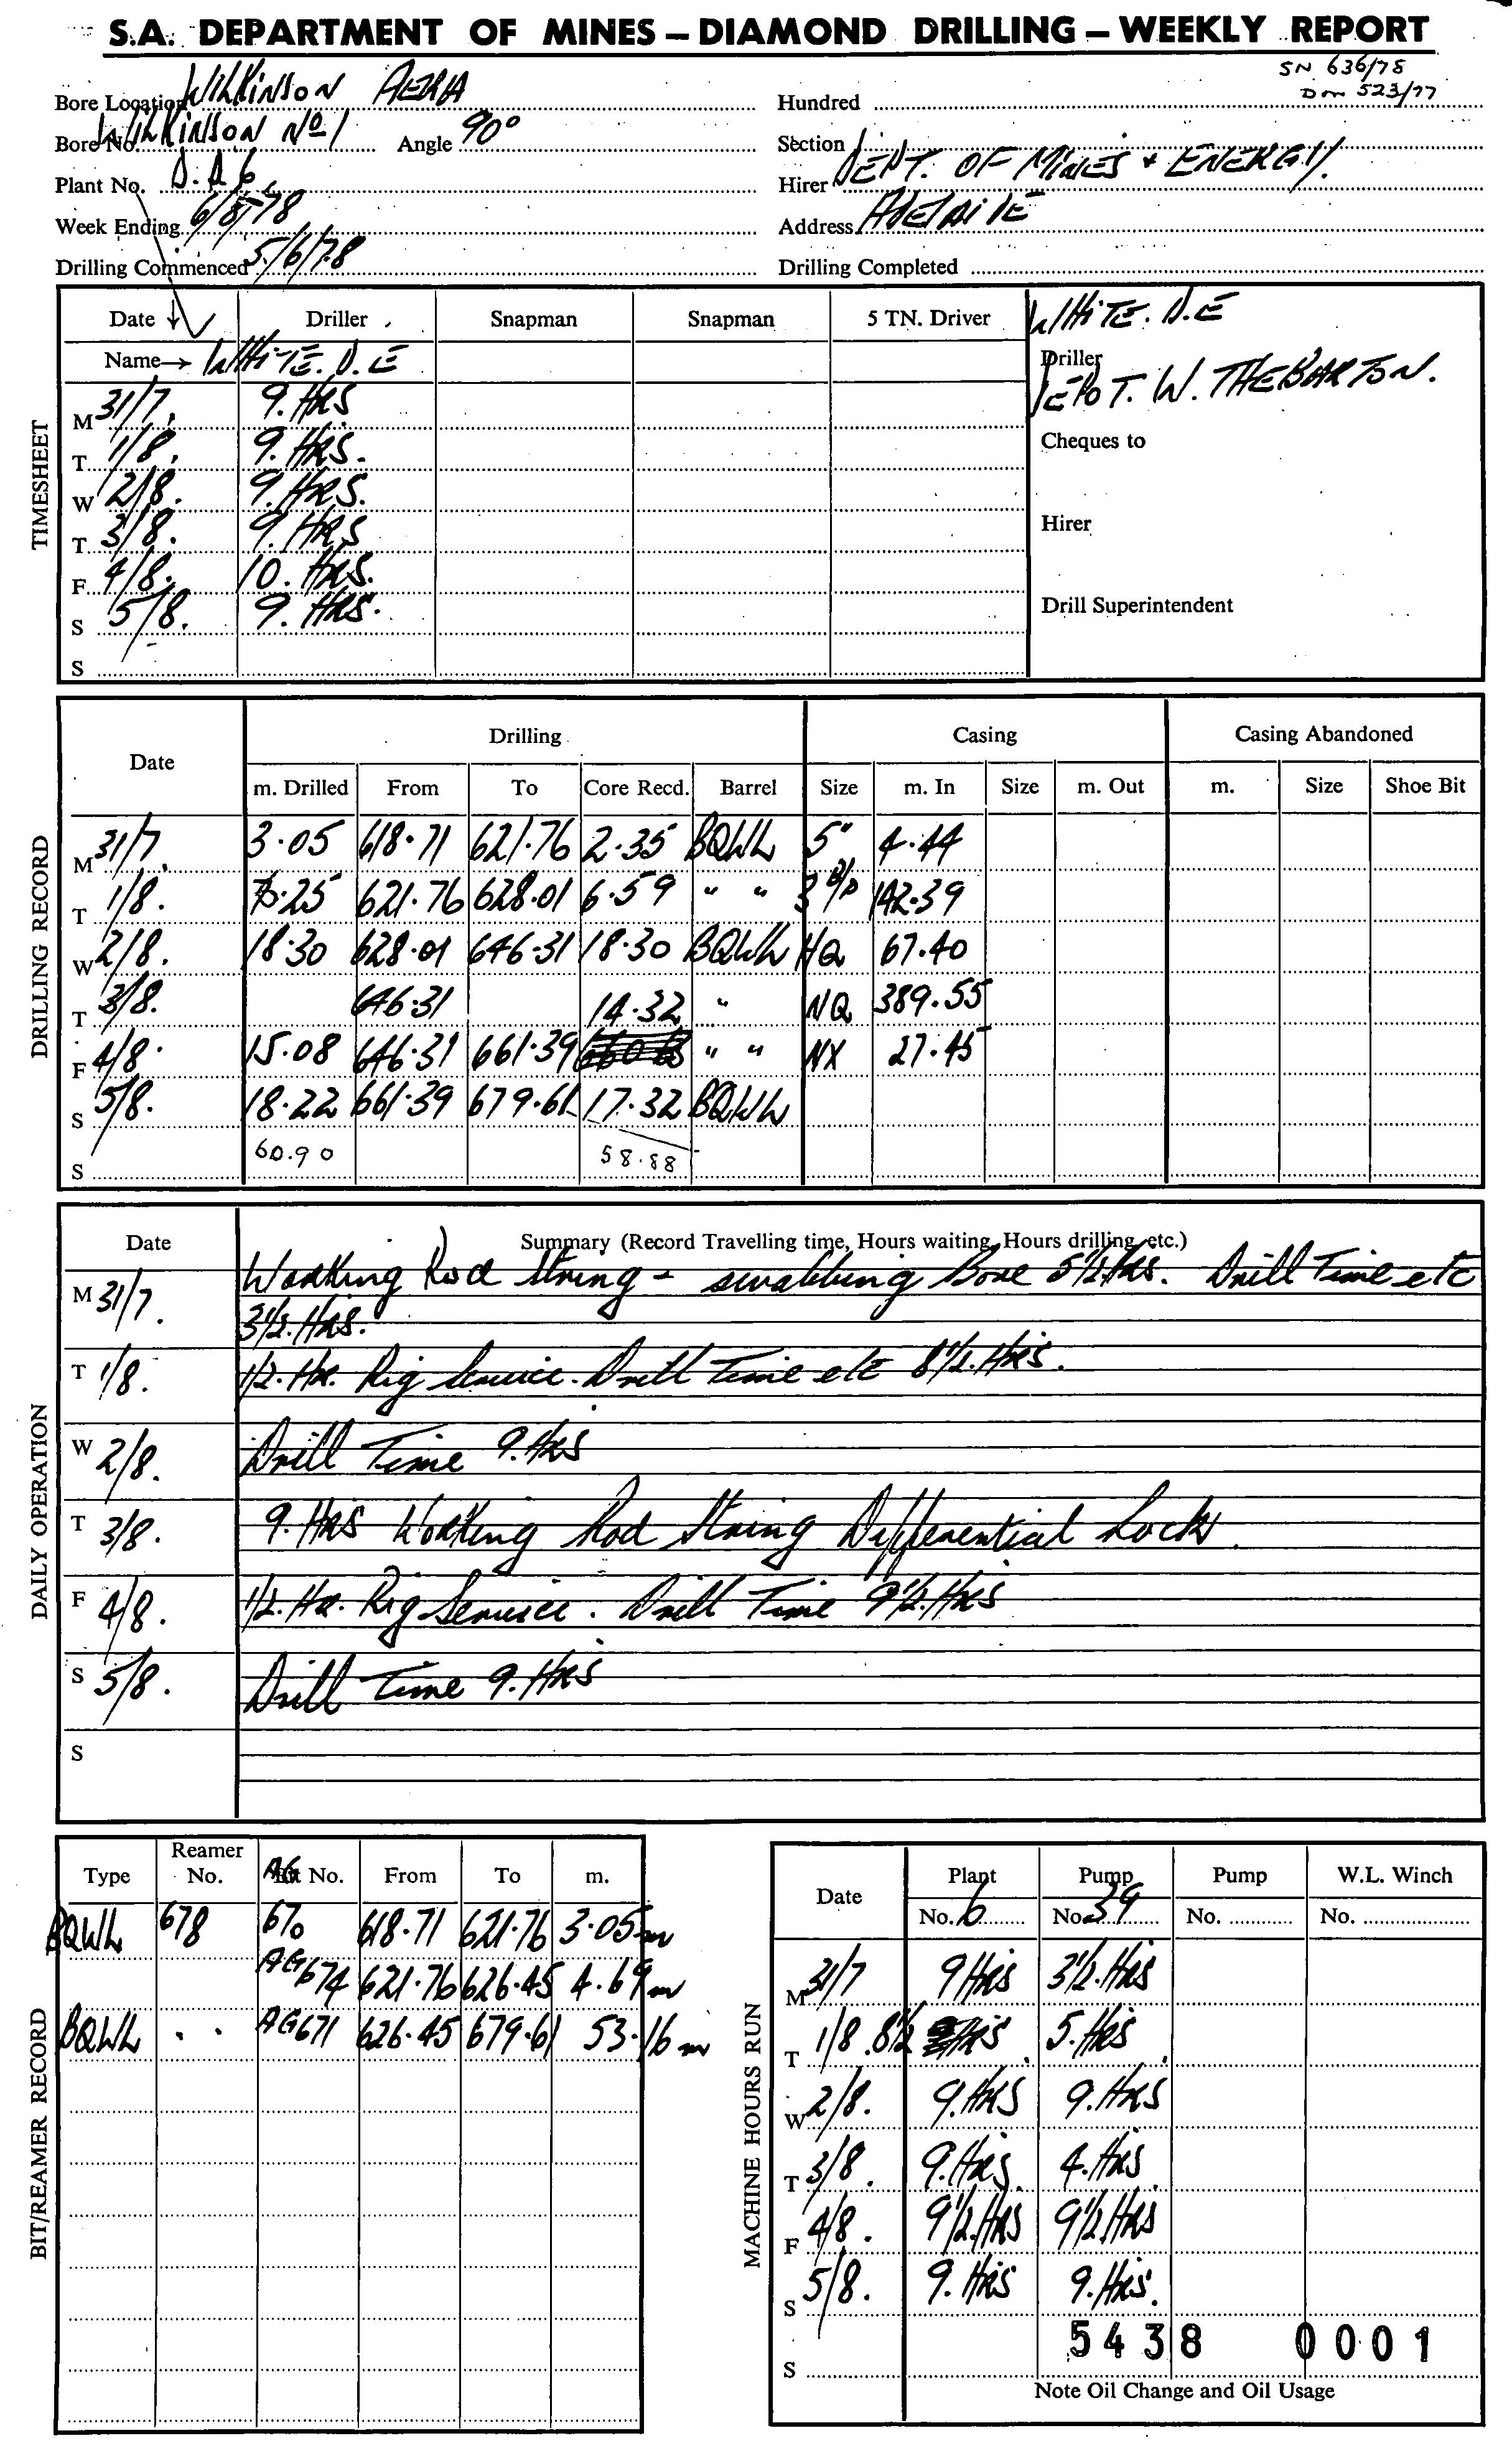 S.A. DEPARTMENT OF MINES – DIAMOND DRILLING – WEEKLY REPORT
SN 636/78
Dm 523/77
Bore Location WILKINSON AERIA
Hundred
Bore No. WILKINSON No 1 Angle 90°
Section
Plant No. D.D 6
Hirer DEPT. OF MINES + ENERGY.
Week Ending 6/8/78
Address ADELAIDE
Drilling Commenced 5/6/78
Drilling Completed
TIMESHEET
Date ↓ Driller Snapman Snapman 5 TN. Driver WHITE. D.E
Name → WHITE. D.E Driller
DEPOT. W. THEBARTON.
M 31/7. 9. HRS
T 1/8. 9. HRS. Cheques to
W 2/8. 9. HRS.
T 3/8. 9. HRS Hirer
F 4/8. 10. HRS.
S 5/8. 9. HRS. Drill Superintendent
S
DRILLING RECORD
Date Drilling Casing Casing Abandoned
m. Drilled From To Core Recd. Barrel Size m. In Size m. Out m. Size Shoe Bit
M 31/7. 3.05 618.71 621.76 2.35 BQWL 5" 4.44
T 1/8. 6.25 621.76 628.01 6.59 " " 142.39
W 2/8. 18.30 628.01 646.31 18.30 BQWL HQ 67.40
T 3/8. 646.31 14.32 " NQ 389.55
F 4/8. 15.08 646.31 661.39 " " NX 27.45
S 5/8. 18.22 661.39 679.61 17.32 BQWL
S 60.90 58.88
DAILY OPERATION
Date Summary (Record Travelling time, Hours waiting, Hours drilling, etc.)
M 31/7. Working Rod String - swabbing Bore 5½ Hrs. Drill Time etc
3½. HRS.
T 1/8. ½. Hr. Rig Service. Drill Time etc 8½. HRS.
W 2/8. Drill Time 9. HRS
T 3/8. 9. HRS Working Rod String Differential Locks.
F 4/8. ½. Hr. Rig Service. Drill Time 9½. HRS
S 5/8. Drill Time 9. HRS
S
BIT/REAMER RECORD
Type Reamer No. Bit No. From To m.
BQWL 678 AG 670 618.71 621.76 3.05m
AG 674 621.76 626.45 4.69m
BQWL . . AG 671 626.45 679.61 53.16m
MACHINE HOURS RUN
Date Plant Pump Pump W.L. Winch
No. 6 No. 39 No. No.
M 31/7 9 HRS 3½. HRS
T 1/8. 8½ HRS 5. HRS
W 2/8. 9. HRS 9. HRS
T 3/8. 9. HRS 4. HRS
F 4/8. 9½. HRS 9½ HRS
S 5/8. 9. HRS 9. HRS.
5438 0001
S
Note Oil Change and Oil Usage